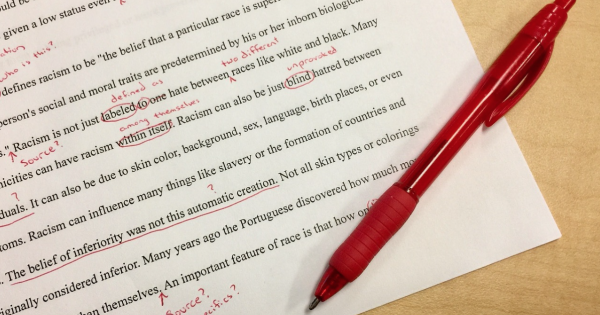 given a low status even
who is this?
defines racism to be "the belief that a particular race is
person's social and moral traits are predetermined by his or her inborn biological
defined as
two different
unprovoked
." Racism is not just labeled to one hate between races like white and black. Many
Source?
among themselves
nicities can have racism within itself. Racism can also be just blind hatred between
?
duals. It can also be due to skin color, background, sex, language, birth places, or even
toms. Racism can influence many things like slavery or the formation of countries and
?
. The belief of inferiority was not this automatic creation. Not all skin types or colorings
iginally considered inferior. Many years ago the Portuguese discovered how much
han themselves. An important feature of race is that how
Source?